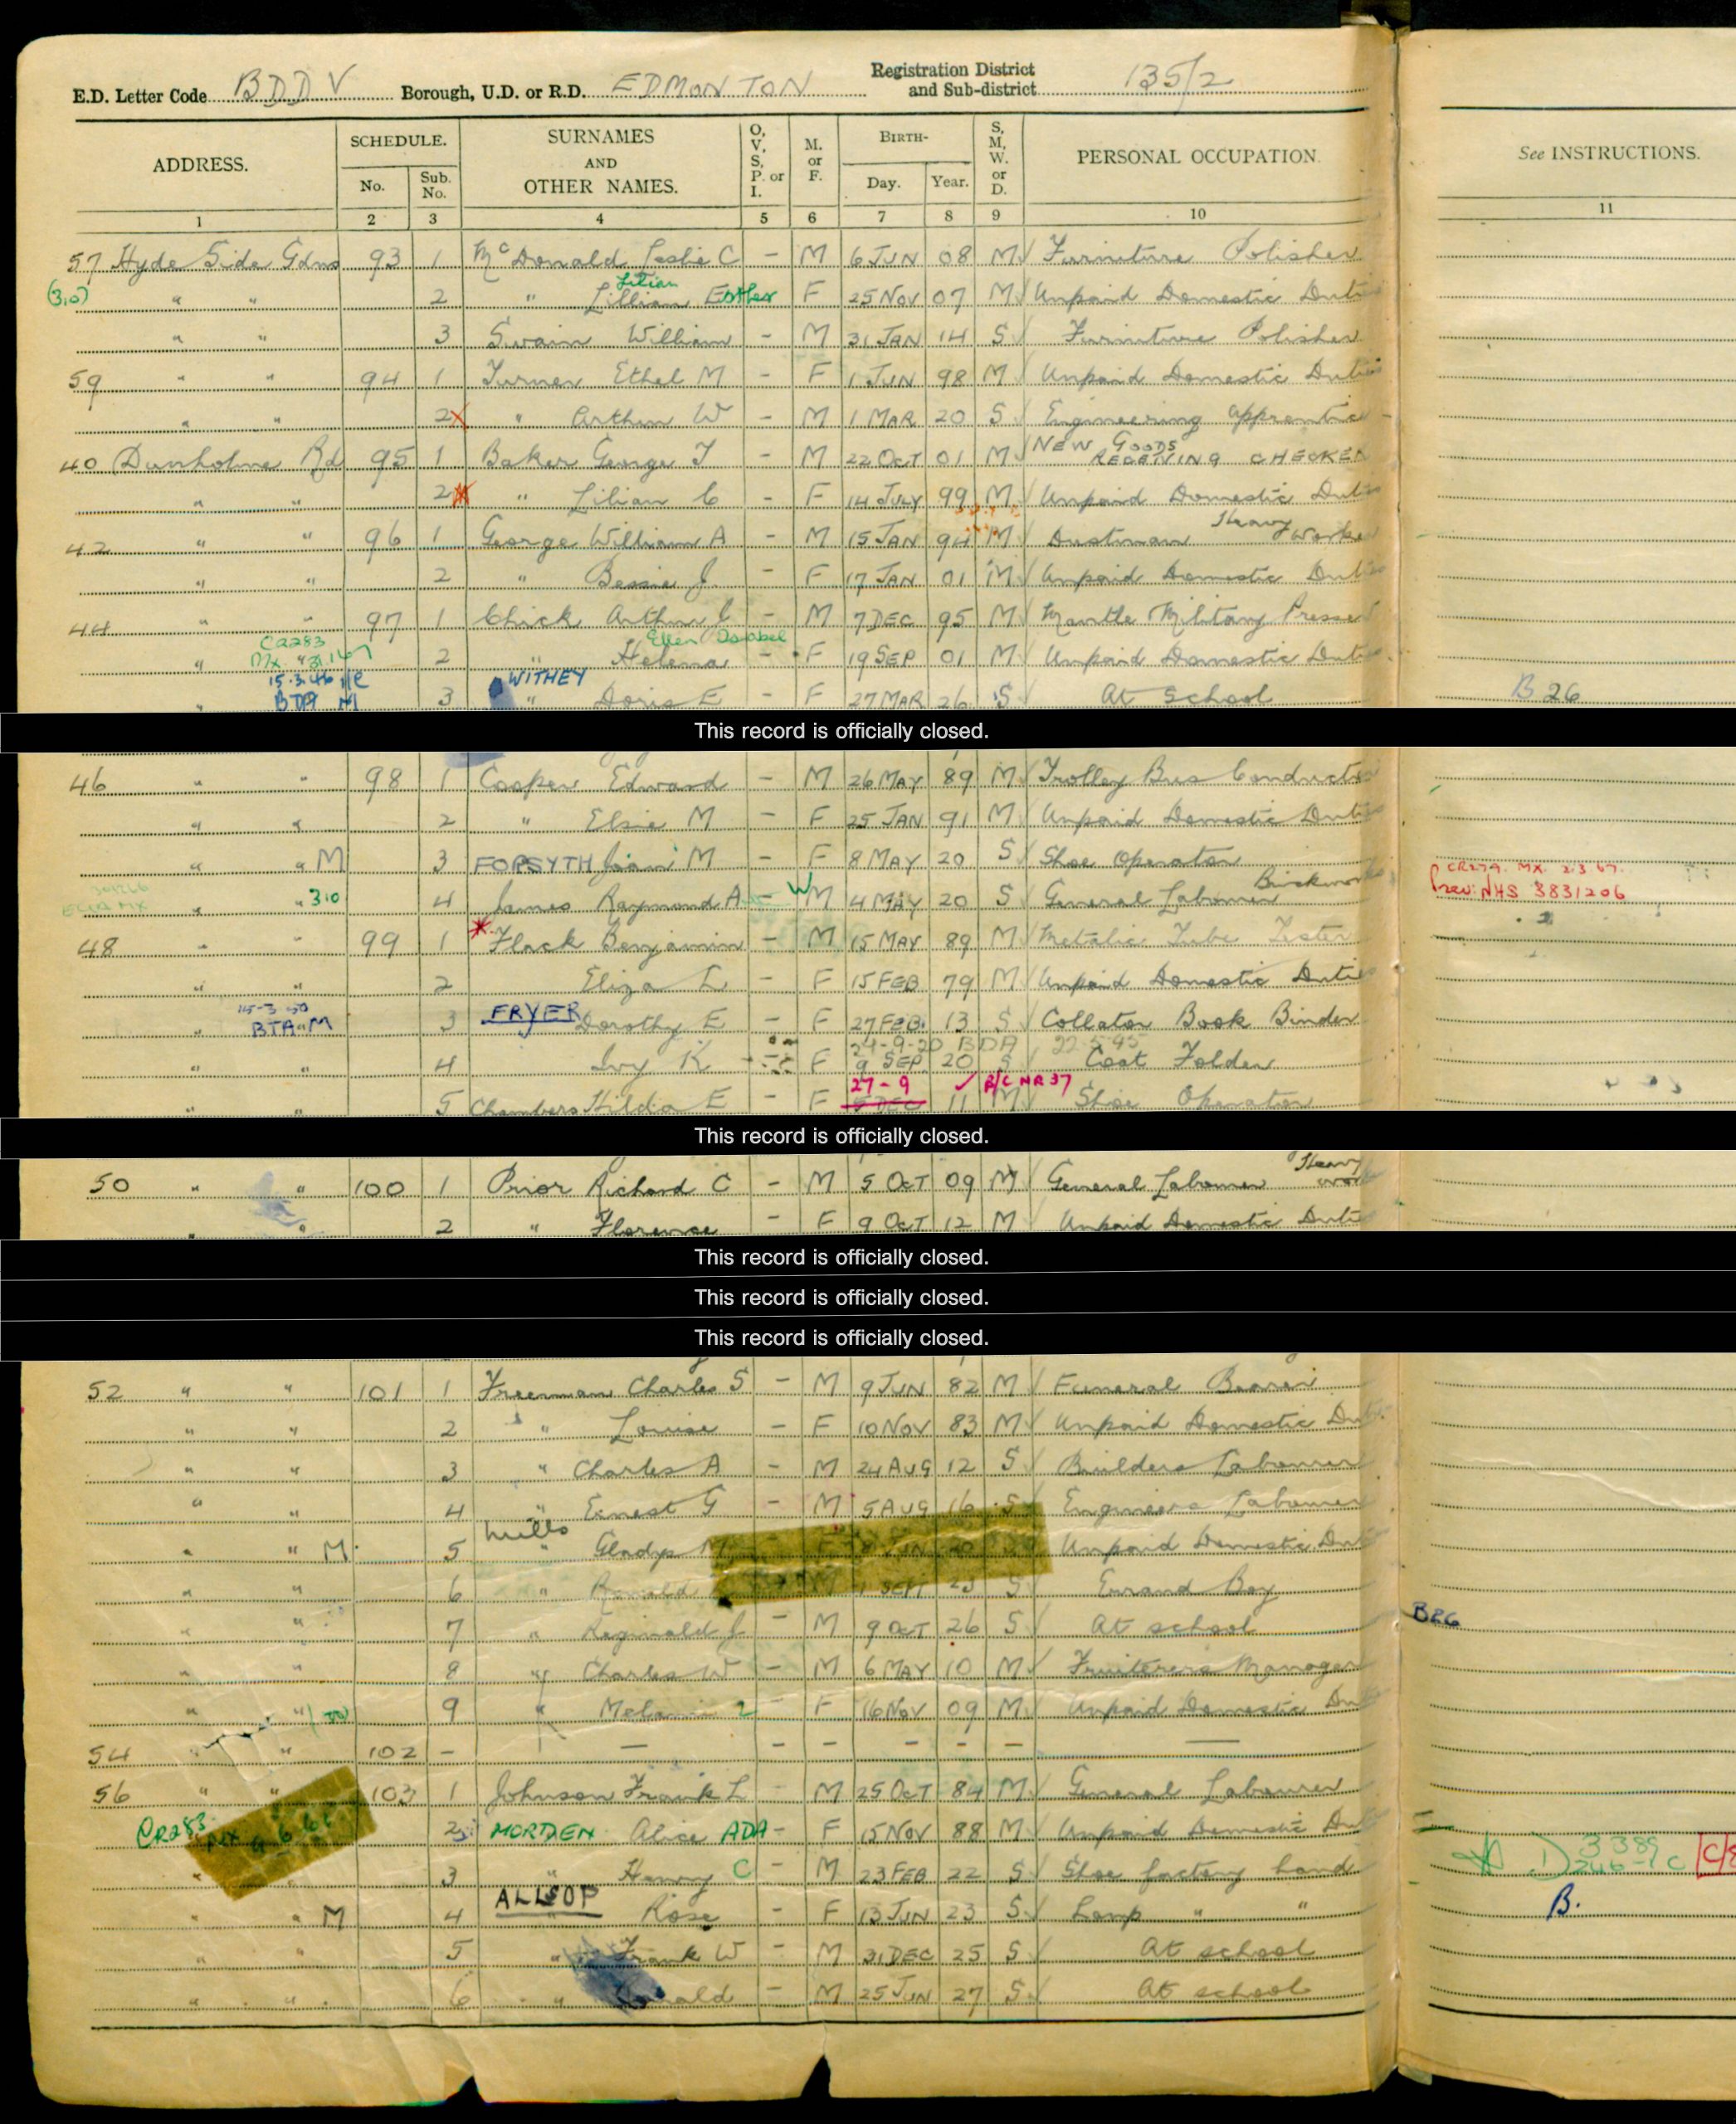 E.D. Letter Code BDDV Borough, U.D. or R.D. EDMONTON Registration District and Sub-district 135/2
ADDRESS. SCHEDULE. No. Sub. No. SURNAMES AND OTHER NAMES. O, V, S, P. or I. M. or F. BIRTH- Day. Year. S, M, W. or D. PERSONAL OCCUPATION. See INSTRUCTIONS.
1 2 3 4 5 6 7 8 9 10 11
57 Hyde Side Gdns 93 1 McDonald Leslie C - M 6 JUN 08 M Furniture Polisher
Lilian
(310) " " 2 " Lillian Esther F 25 NOV 07 M Unpaid Domestic Duties
" " 3 Swain William - M 31 JAN 14 S Furniture Polisher
59 " " 94 1 Turner Ethel M - F 1 JUN 98 M Unpaid Domestic Duties
" " 2 " Arthur W - M 1 MAR 20 S Engineering Apprentice
NEW GOODS
40 Dunholme Rd 95 1 Baker George T - M 22 OCT 01 M RECEIVING CHECKER
" " 2 " Lilian C - F 14 JULY 99 M Unpaid Domestic Duties
42 " " 96 1 George William A - M 15 JAN 94 M Dustman Heavy Worker
" " 2 " Bessie J. - F 17 JAN 01 M Unpaid Domestic Duties
44 " " 97 1 Chick Arthur C - M 7 DEC 95 M Mantle Military Presser
CR283 Ellen Isabel
" Mx 2 " Helena - F 19 SEP 01 M Unpaid Domestic Duties
15.3.46 WITHEY
" BTA M 3 " Doris E - F 27 MAR 26 S At School B 26
This record is officially closed.
46 " " 98 1 Cooper Edward - M 26 MAY 89 M Trolley Bus Conductor
" " 2 " Elsie M - F 25 JAN 91 M Unpaid Domestic Duties
" " M 3 FORSYTH Jean M - F 8 MAY 20 S Shoe Operator
CR279. MX. 2.3.67.
" " 310 4 James Raymond A - M 4 MAY 20 S General Labourer Brickworks
Prev: NHS 3831206
48 " " 99 1 Flack Benjamin - M 15 MAY 89 M Metalic Tube Tester
" " 2 Eliza L - F 15 FEB 79 M Unpaid Domestic Duties
15-3-50
" BTA M 3 FRYER Dorothy E - F 27 FEB. 13 S Collator Book Binder
24-9-20 BDA 22-5-95
" " 4 Ivy K F 9 SEP 20 S Coat Folder
27-9 B/C NR 37
" " 5 Chambers Hilda E - F 5 DEC 11 M Shoe Operator
This record is officially closed.
50 " " 100 1 Prior Richard C - M 5 OCT 09 M General Labourer Heavy work
" " 2 " Florence - F 9 OCT 12 M Unpaid Domestic Duties
This record is officially closed.
This record is officially closed.
This record is officially closed.
52 " " 101 1 Freeman Charles S - M 9 JUN 82 M Funeral Bearer
" " 2 " Louise - F 10 NOV 83 M Unpaid Domestic Duties
" " 3 " Charles A - M 24 AUG 12 S Builders Labourer
" " 4 " Ernest G - M 5 AUG 16 S Engineers Labourer
Mills
" " M 5 " Gladys M F JUN Unpaid Domestic Duties
" " 6 " Ronald 1 SEPT 23 S Errand Boy
" " 7 " Reginald J - M 9 OCT 26 S At school B26
" " 8 " Charles W - M 6 MAY 10 M Fruiterers Manager
" " 9 " - F 16 NOV 09 M Unpaid Domestic Duties
54 " " 102 - - - - - - - -
56 " " 103 1 Johnson Frank L - M 25 OCT 84 M General Labourer
CR283 2 MORDEN Alice ADA - F 15 NOV 88 M Unpaid Domestic Duties
" 3 " Henry C - M 23 FEB 22 S Shoe factory hand
ALLSOP
" " M 4 " Rose - F 13 JUN 23 S Lamp " " B.
" " 5 " Frank W - M 31 DEC 25 S At school
" " 6 " - M 25 JUN 27 S At school